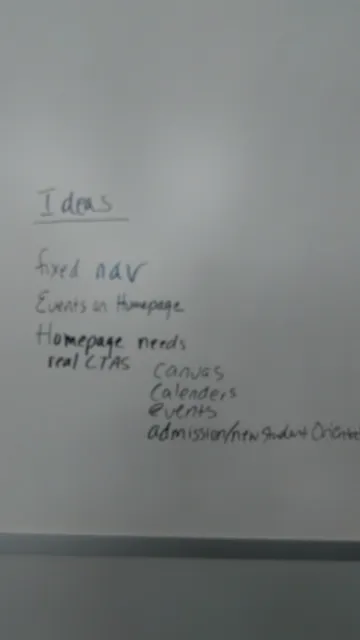 Ideas
fixed nav
Events on Homepage
Homepage needs
real CTAS
Canvas
Calenders
events
admission/new student Orientat